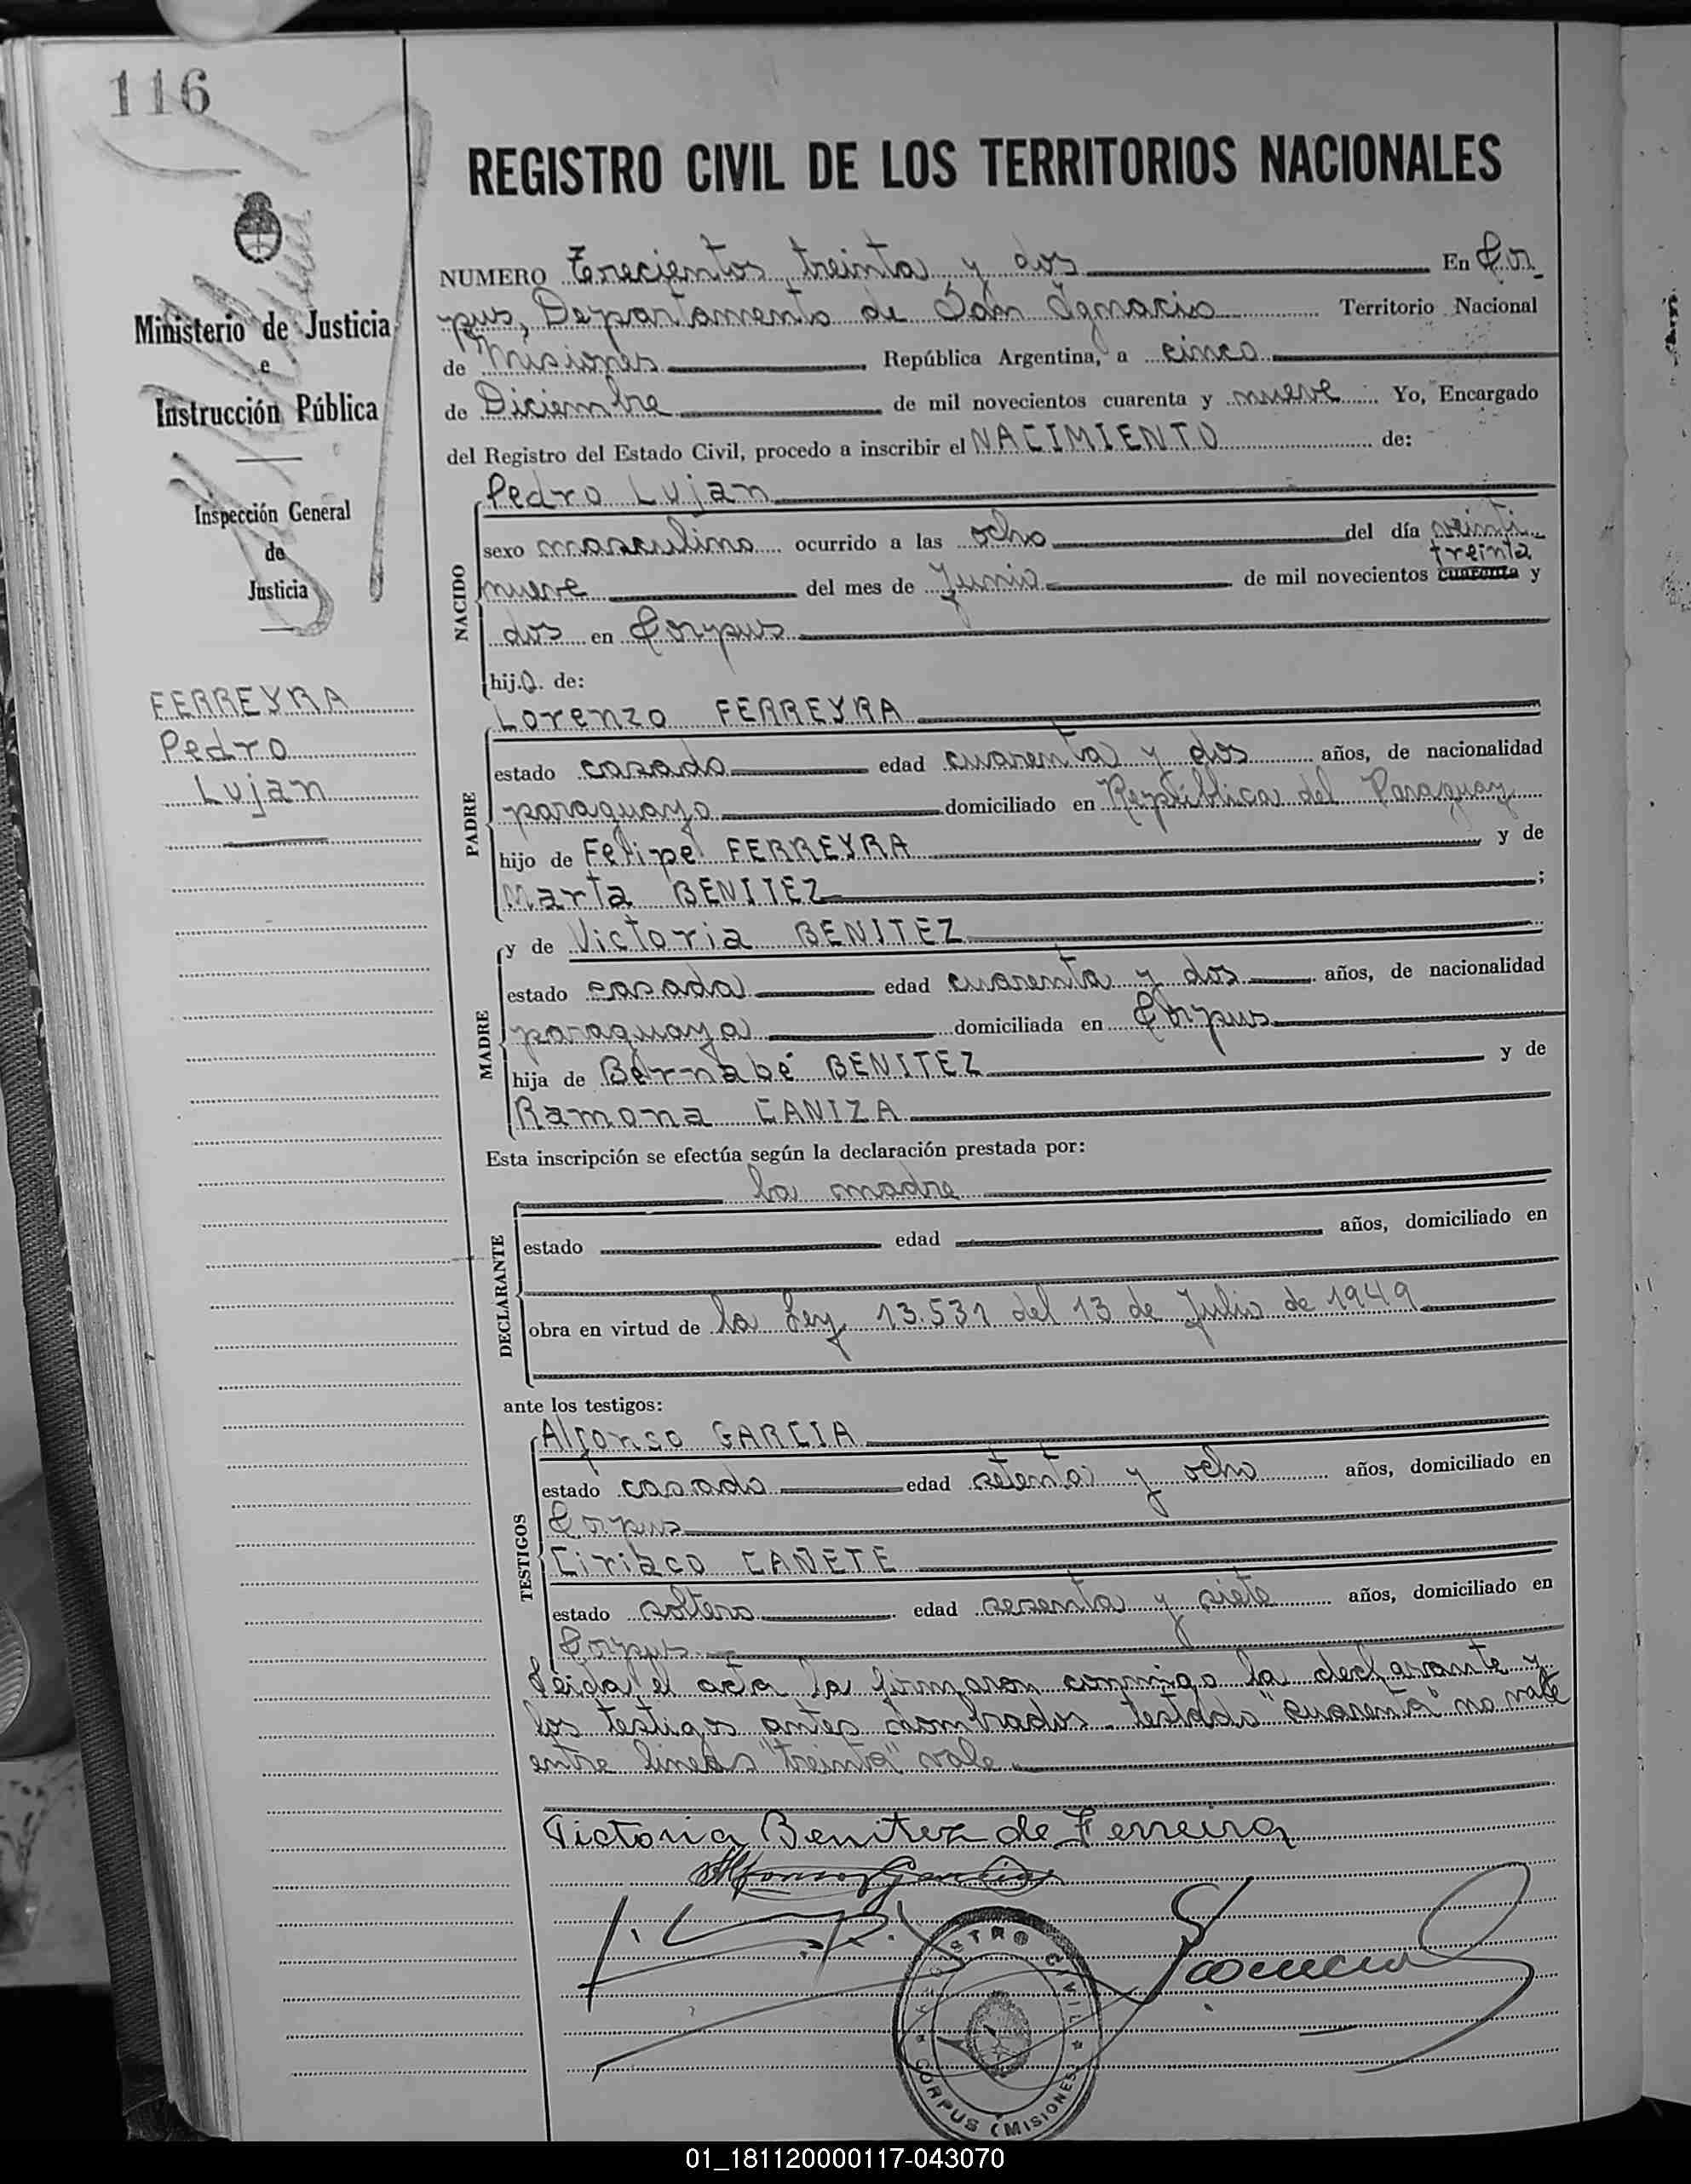 116
REGISTRO CIVIL DE LOS TERRITORIOS NACIONALES
Ministerio de Justicia
e
Instrucción Pública
Inspección General
de
Justicia
FERREYRA
Pedro
Lujan
NUMERO Trecientos treinta y dos En Cor
pus, Departamento de San Ignacio Territorio Nacional
de Misiones República Argentina, a cinco
de Diciembre de mil novecientos cuarenta y nueve Yo, Encargado
del Registro del Estado Civil, procedo a inscribir el NACIMIENTO de:
NACIDO
Pedro Lujan
sexo masculino ocurrido a las ocho del día veinti
treinta
nueve del mes de Junio de mil novecientos cuarenta y
dos en Corpus
hijo de:
PADRE
Lorenzo FERREYRA
estado casado edad cuarenta y dos años, de nacionalidad
paraguayo domiciliado en República del Paraguay
hijo de Felipe FERREYRA y de
Marta BENITEZ ;
MADRE
y de Victoria BENITEZ
estado casada edad cuarenta y dos años, de nacionalidad
paraguaya domiciliada en Corpus
hija de Bernabé BENITEZ y de
Ramona CANIZA
Esta inscripción se efectúa según la declaración prestada por:
DECLARANTE
la madre
estado edad años, domiciliado en
obra en virtud de la Ley 13.531 del 13 de Julio de 1949
ante los testigos:
TESTIGOS
Alfonso GARCIA
estado casado edad setenta y ocho años, domiciliado en
Corpus
Ciriaco CAÑETE
estado soltero edad sesenta y siete años, domiciliado en
Corpus
Leida el acta la firmaron conmigo la declarante y
los testigos antes nombrados. testado "cuarenta" no vale
entre lineas "treinta" vale
Victoria Benitez de Ferreira
Alfonso Garcia
REGISTRO CIVIL
CORPUS (MISIONES)
01_181120000117-043070